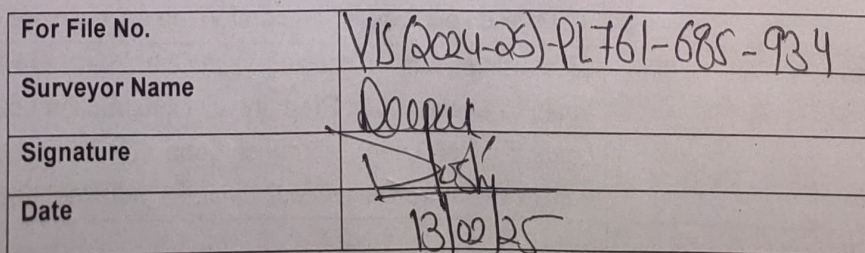 For File No. VIS(2024-25)-PL761-685-934
Surveyor Name Deepak
Signature Joshi
Date 13/02/25